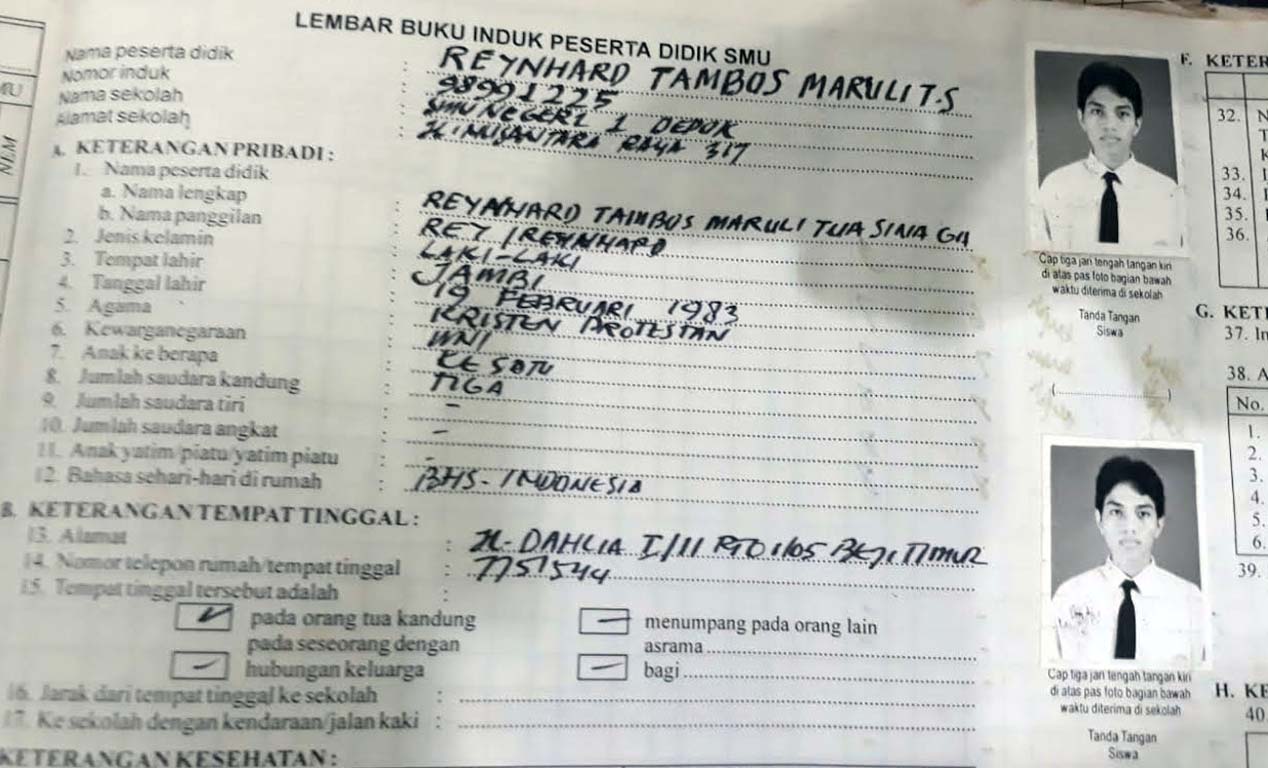 LEMBAR BUKU INDUK PESERTA DIDIK SMU
Nama peserta didik : REYNHARD TAMBOS MARULI T.S
Nomor induk : 98991225
Nama sekolah : SMU NEGERI 1 DEPOK
Alamat sekolah : Jl. NUSANTARA RAYA 317
A. KETERANGAN PRIBADI :
1. Nama peserta didik
a. Nama lengkap : REYNHARD TAMBOS MARULI TUA SINAGA
b. Nama panggilan : REY / REYNHARD
2. Jenis kelamin : LAKI-LAKI
3. Tempat lahir : JAMBI
4. Tanggal lahir : 19 FEBRUARI 1983
5. Agama : KRISTEN PROTESTAN
6. Kewarganegaraan : WNI
7. Anak ke berapa : KE SATU
8. Jumlah saudara kandung : TIGA
9. Jumlah saudara tiri : -
10. Jumlah saudara angkat : -
11. Anak yatim/piatu/yatim piatu : -
12. Bahasa sehari-hari di rumah : BHS. INDONESIA
B. KETERANGAN TEMPAT TINGGAL :
13. Alamat : Jl. DAHLIA I/11 BEJI TIMUR
14. Nomor telepon rumah/tempat tinggal : 7751544
15. Tempat tinggal tersebut adalah :
pada orang tua kandung menumpang pada orang lain
pada seseorang dengan asrama
hubungan keluarga bagi
16. Jarak dari tempat tinggal ke sekolah :
17. Ke sekolah dengan kendaraan/jalan kaki :
KETERANGAN KESEHATAN :
NEM
Cap tiga jari tengah tangan kiri
di atas pas foto bagian bawah
waktu diterima di sekolah
Tanda Tangan
Siswa
(                    )
Cap tiga jari tengah tangan kiri
di atas pas foto bagian bawah
waktu diterima di sekolah
Tanda Tangan
Siswa
F. KETER
32.
33.
34.
35.
36.
G. KETE
37.
38. A
No.
1.
2.
3.
4.
5.
6.
39.
H. KE
40